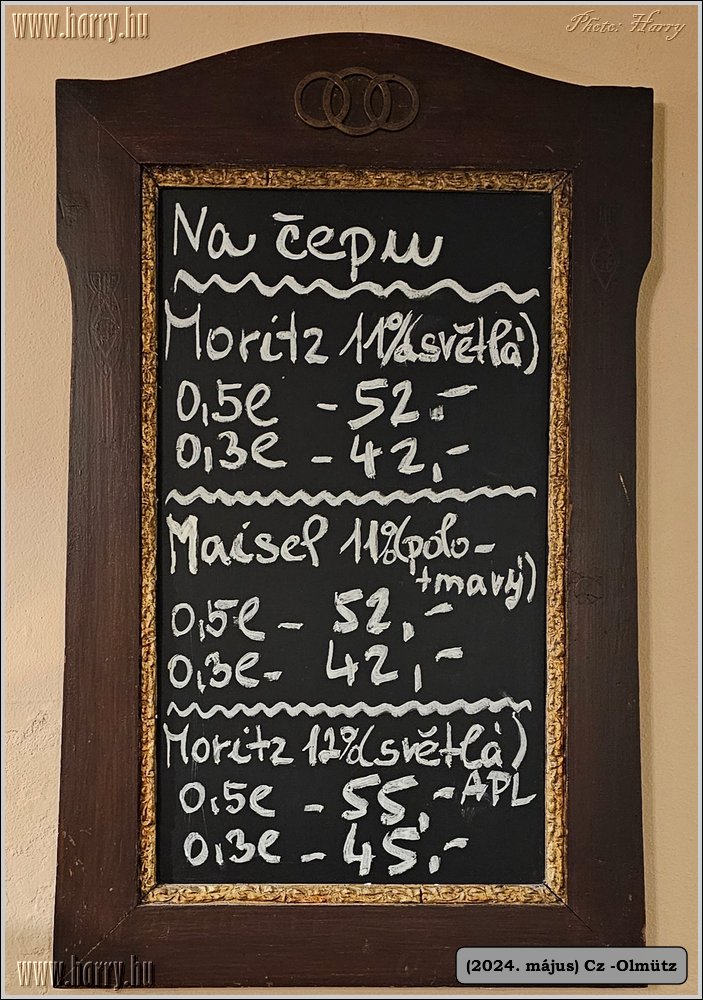 www.harry.hu
Photo: Harry
Na čepu
Moritz 11% (světlá)
0,5l - 52,-
0,3l - 42,-
Maisel 11% (polo-
tmavý)
0,5l - 52,-
0,3l - 42,-
Moritz 12% (světlá)
APL
0,5l - 55,-
0,3l - 45,-
www.harry.hu
(2024. május) Cz -Olmütz